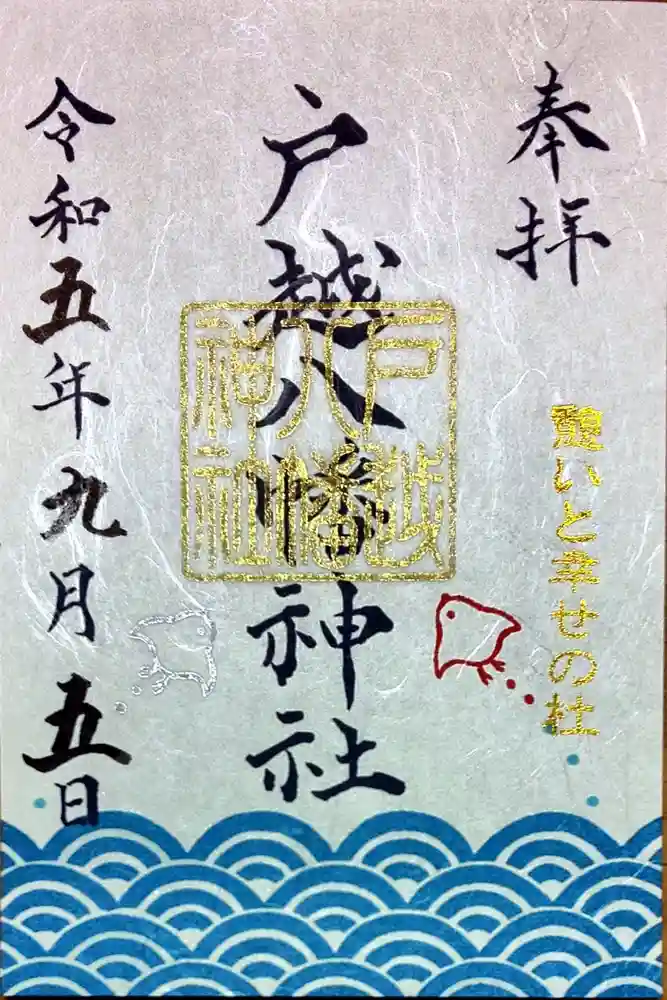 奉拝
憩いと幸せの杜
戸越八幡神社
戸越
八幡
神社
令和五年九月五日